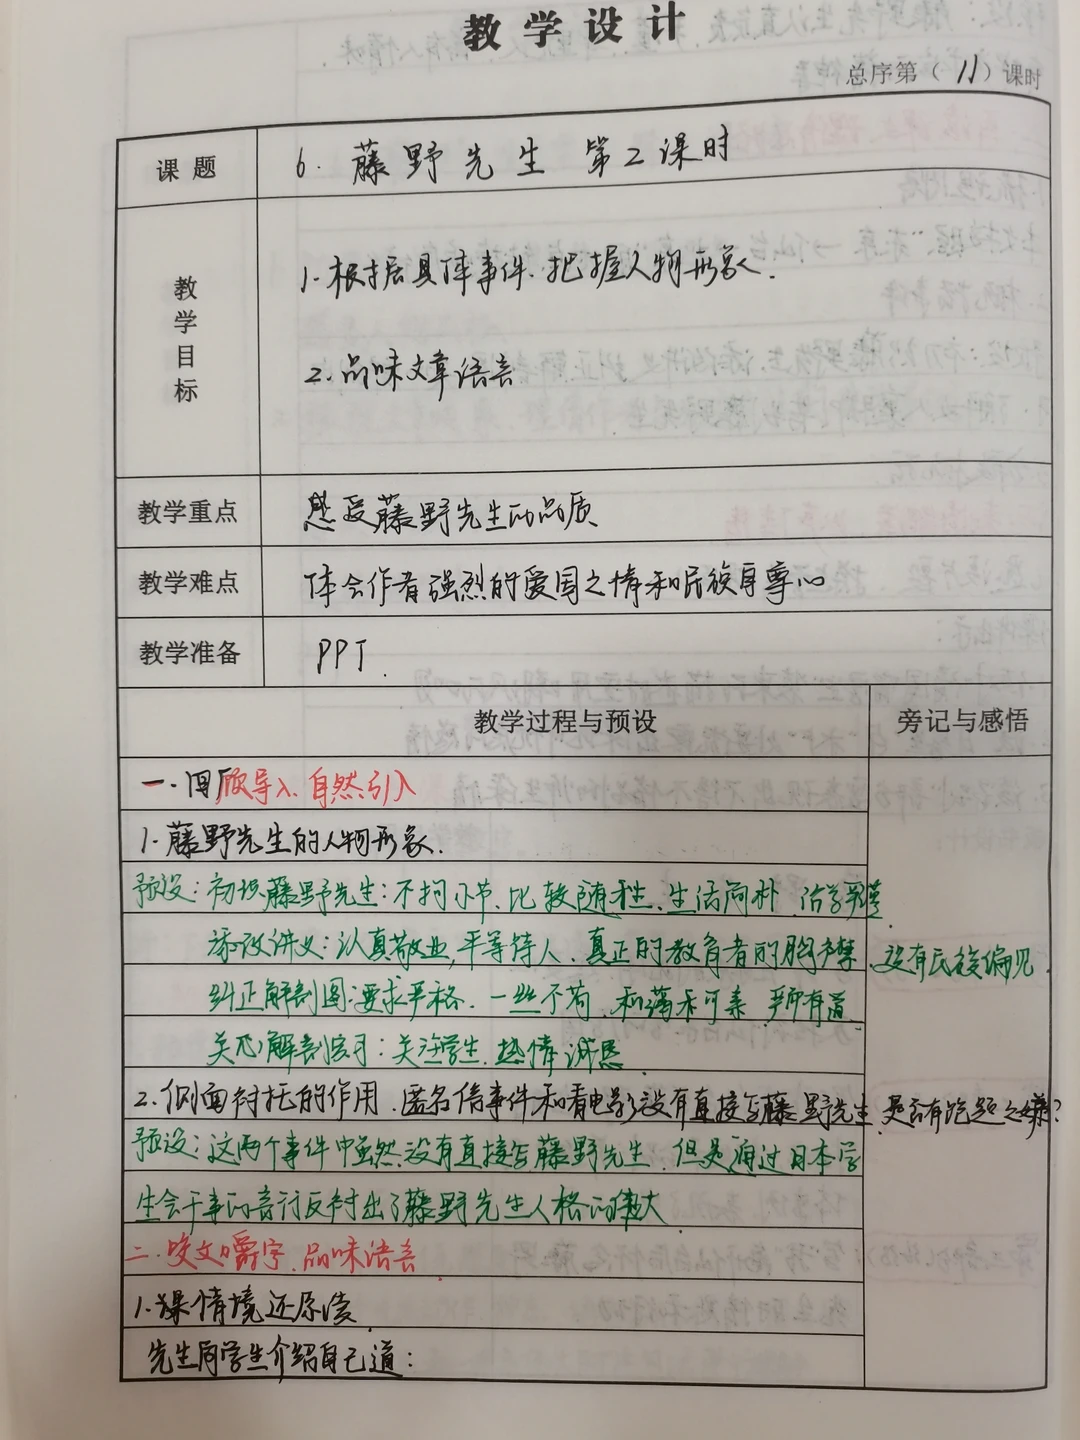 教学设计
总序第（11）课时
课题
6. 藤野先生 第2课时
教学目标
1.根据具体事件、把握人物形象.
2.品味文章语言
教学重点
感受藤野先生的品质
教学难点
体会作者强烈的爱国之情和民族自尊心
教学准备
PPT.
教学过程与预设
旁记与感悟
一.回顾导入、自然引入
1.藤野先生的人物形象.
预设：初识藤野先生：不拘小节、比较随和、生活简朴、治学严谨
添改讲义：认真敬业,平等待人、真正的教育者的胸襟、没有民族偏见
纠正解剖图：要求严格、一丝不苟、和蔼可亲 严师有道
关心解剖实习：关注学生、热情诚恳
2.侧面衬托的作用、匿名信事件和看电影没有直接写藤野先生、是否有跑题之嫌？
预设：这两个事件中虽然没有直接写藤野先生、但是通过日本学
生会干事的言行反衬出了藤野先生人格的伟大
二.咬文嚼字、品味语言
情境还原读
先生向学生介绍自己道：